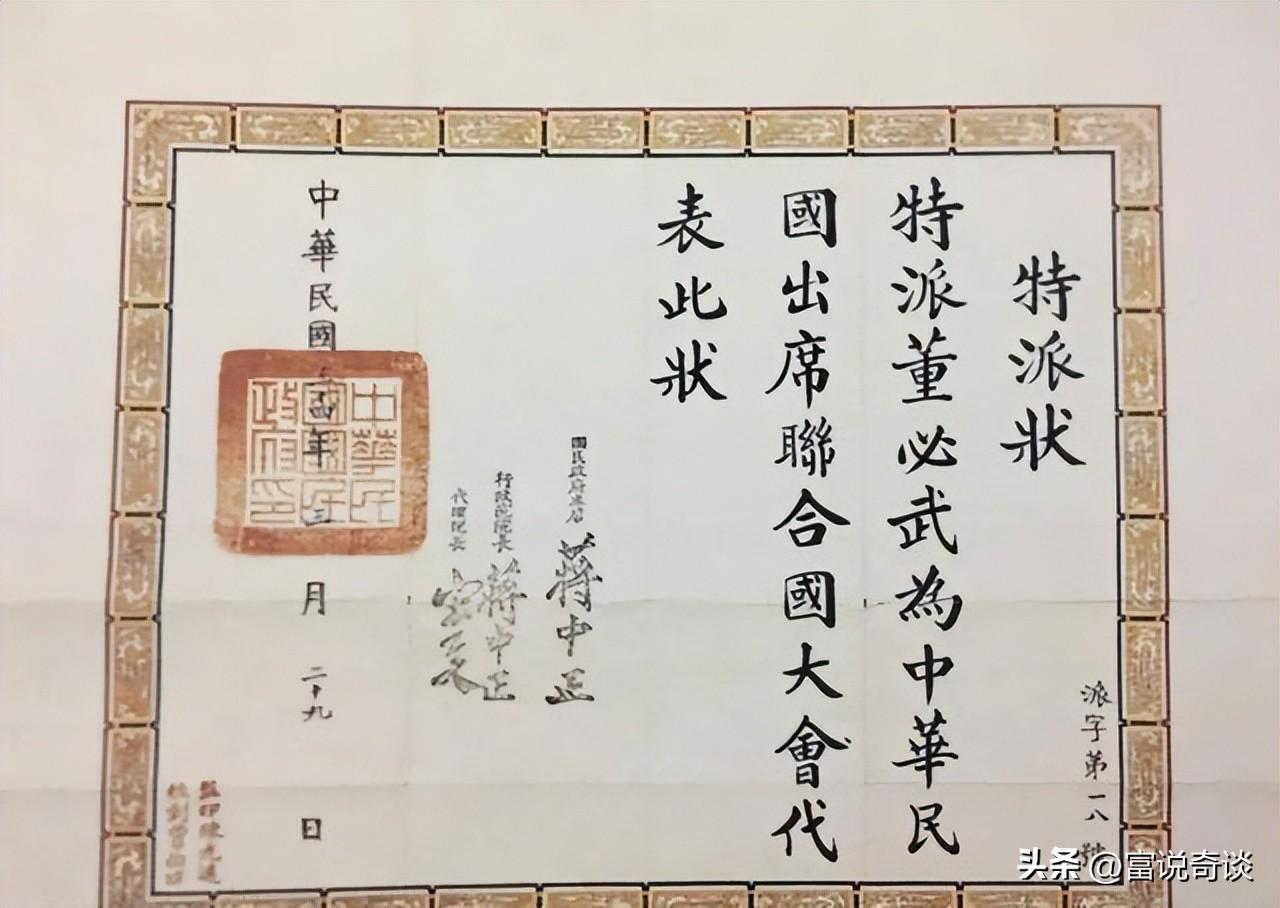 特派狀
特派董必武為中華民
國出席聯合國大會代
表此狀
國民政府主席 蔣中正
行政院院長 蔣中正
代理院長 宋子文
中華民國三十四年三月二十九日
中華民國國民政府印
派字第一八號
監印陳光遠
头条 @富说奇谈